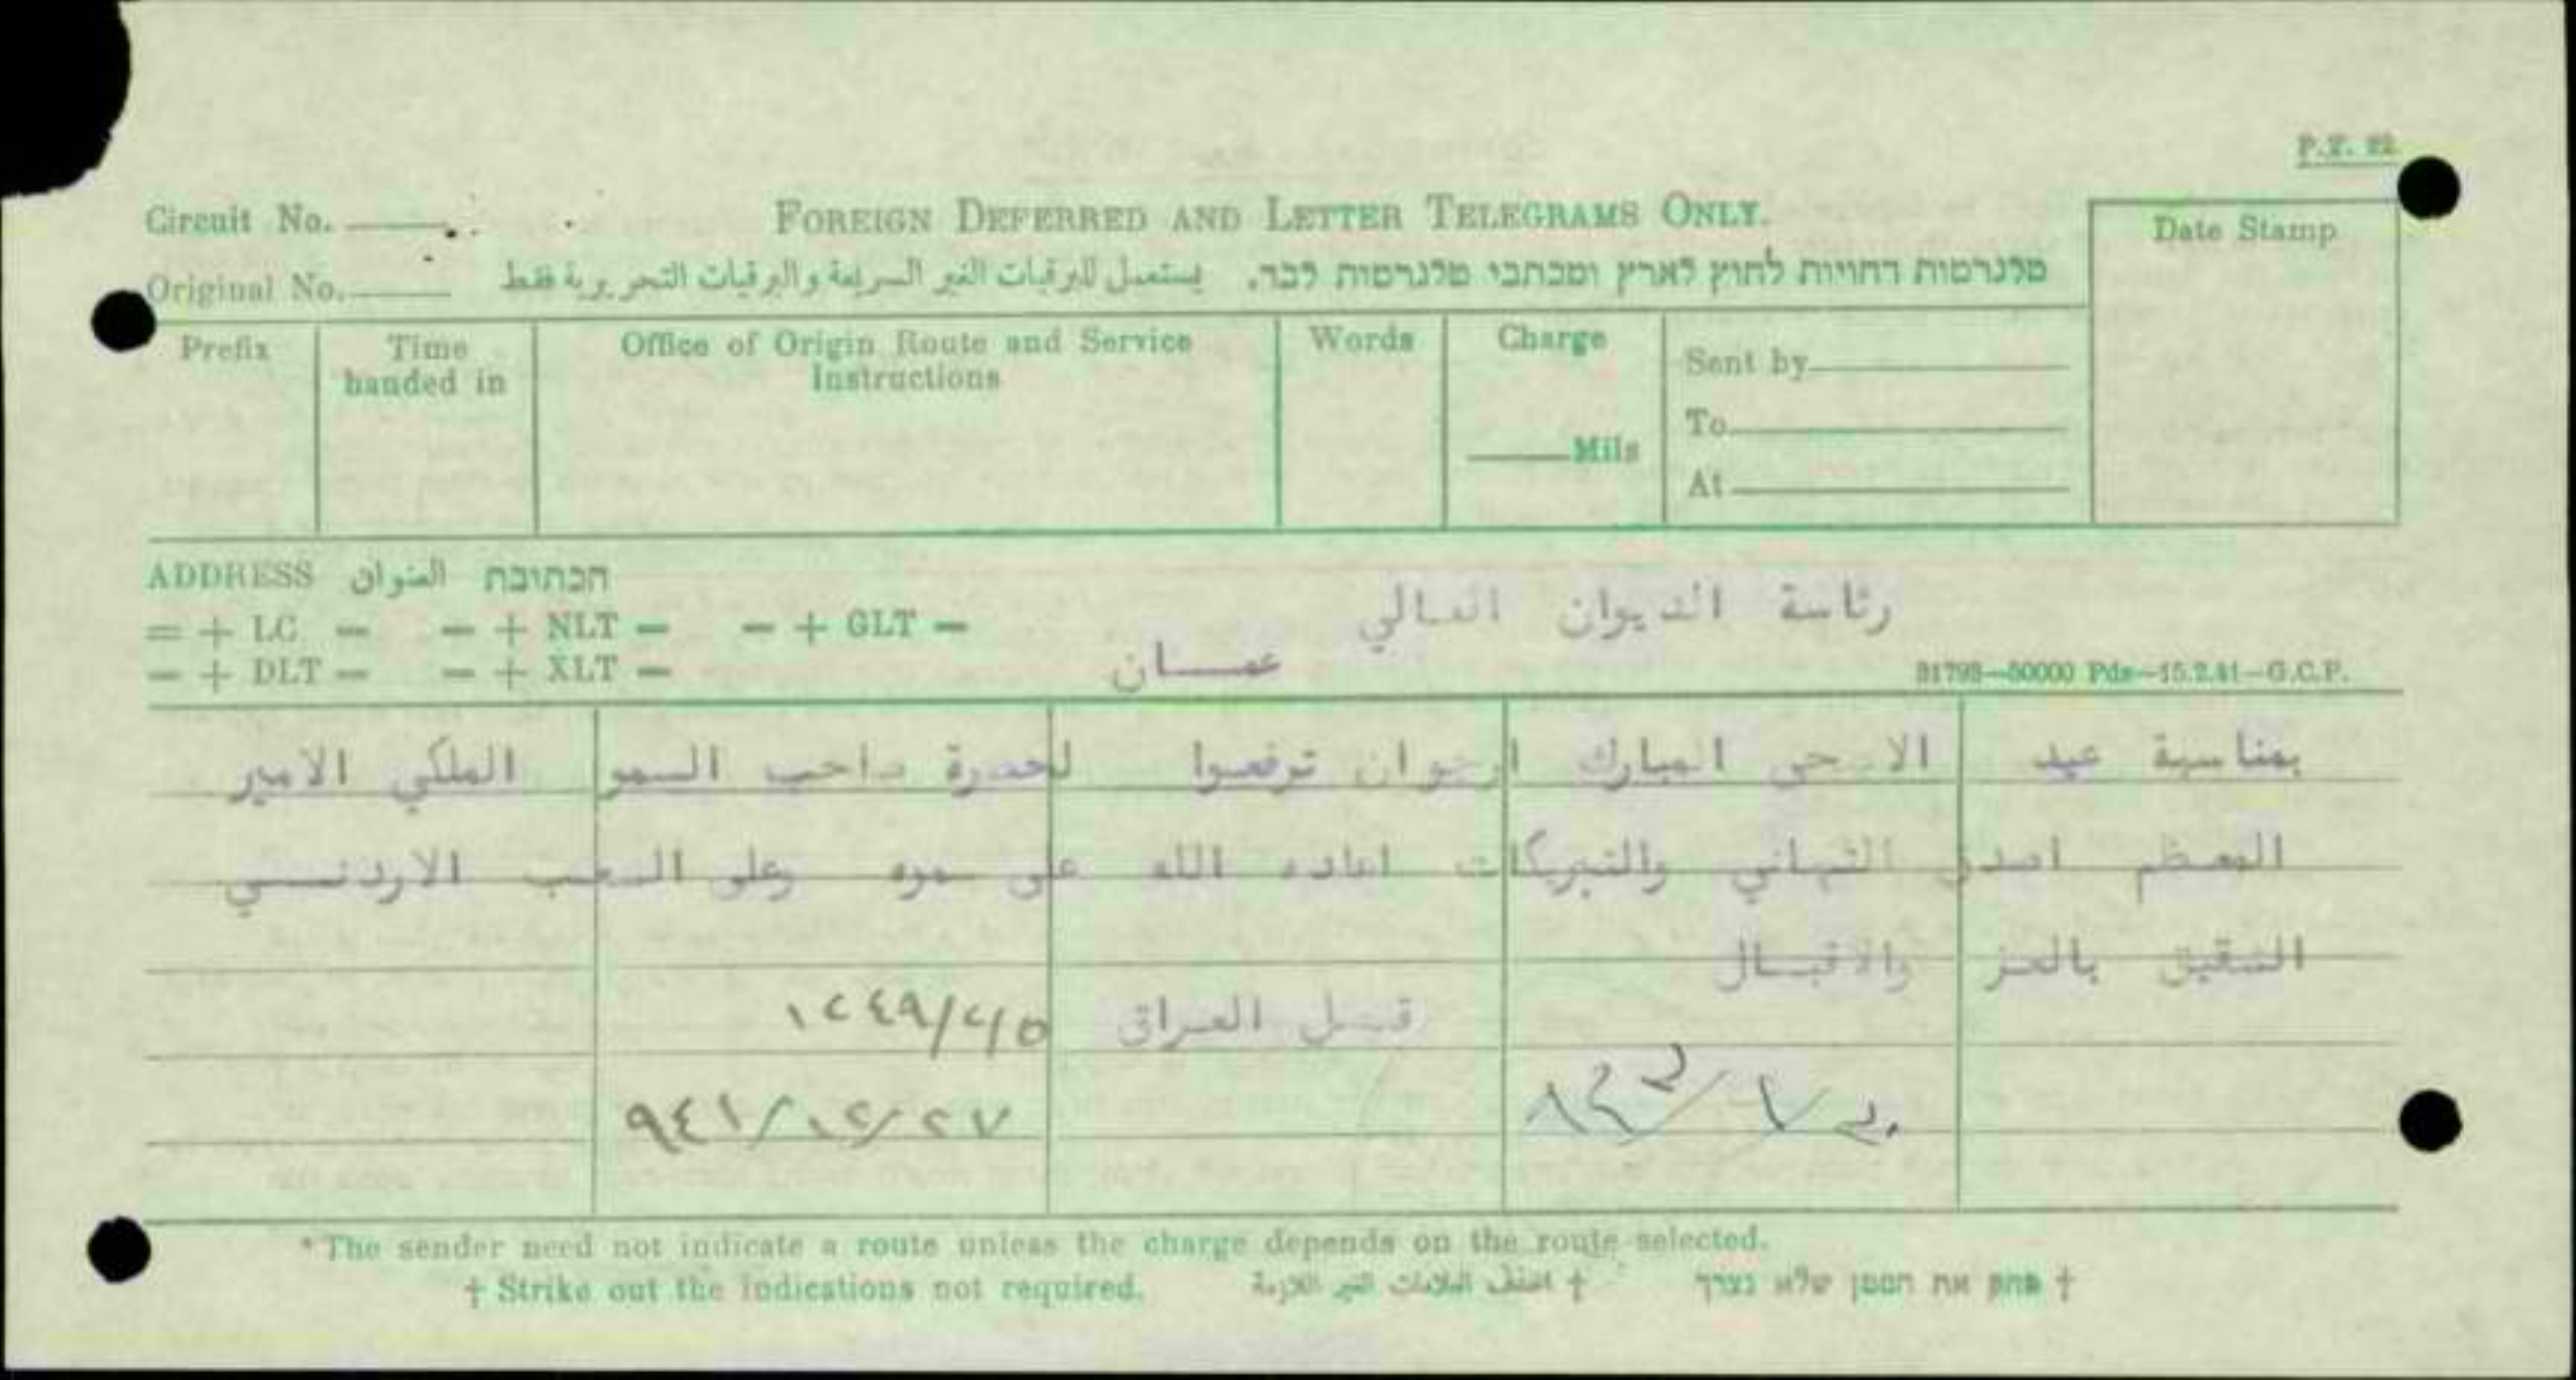 P.T. 22
Circuit No.
FOREIGN DEFERRED AND LETTER TELEGRAMS ONLY.
Date Stamp
Original No.
يستعمل للبرقيات الغير السريعة والبرقيات التحريرية فقط
טלגרמות דחויות לחוץ לארץ ומכתבי טלגרמות לבד.
Prefix
Time handed in
Office of Origin Route and Service Instructions
Words
Charge
Mils
Sent by
To
At
ADDRESS العنوان הכתובת
= + LC — — + NLT — — + GLT —
— + DLT — — + XLT —
رئاسة الديوان العالي
عمــان
31793—50000 Pds—15.2.41—G.C.P.
بمناسبة عيد الاضحى المبارك ارجو ان ترفعوا لحضرة صاحب السمو الملكي الامير
المعظم اصدق التهاني والتبريكات اعاده الله على سموه وعلى الشعب الاردنــي
الشقيق بالعز والاقبــال
قنصل العراق
١٢٤٩/٢/٥
٩٤١/١٢/٢٧
*The sender need not indicate a route unless the charge depends on the route selected.
† Strike out the indications not required.
† احذف العلامات الغير اللازمة
† מחק את הסמן שלא נצרך